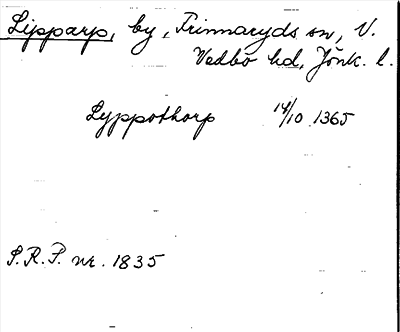 Lipparp, by, Frinnaryds sn, V.
Vedbo hd, Jönk. l.
Lyppothorp 14/10 1365
S.R.P. nr. 1835